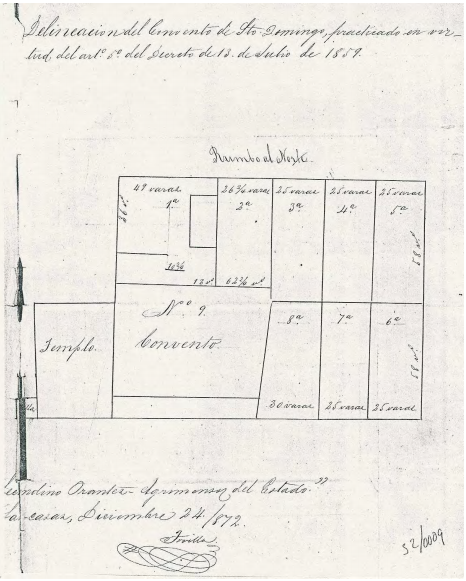 Delineacion del Convento de Sto. Domingo, practicado en vir-
tud, del artº 5º del Decreto de 13. de Julio de 1859.
Rumbo al Norte.
49 varas 26 3/4 varas 25 varas 25 varas 25 varas
1ª 2ª 3ª 4ª 5ª
36 vs
58 vs
12 vs
Nº 9.
Convento
Templo.
8ª 7ª 6ª
58 vs
30 varas 25 varas 25 varas
Orantes - Agrimensor del Estado."
casas, Diciembre 24/872.
32/0009